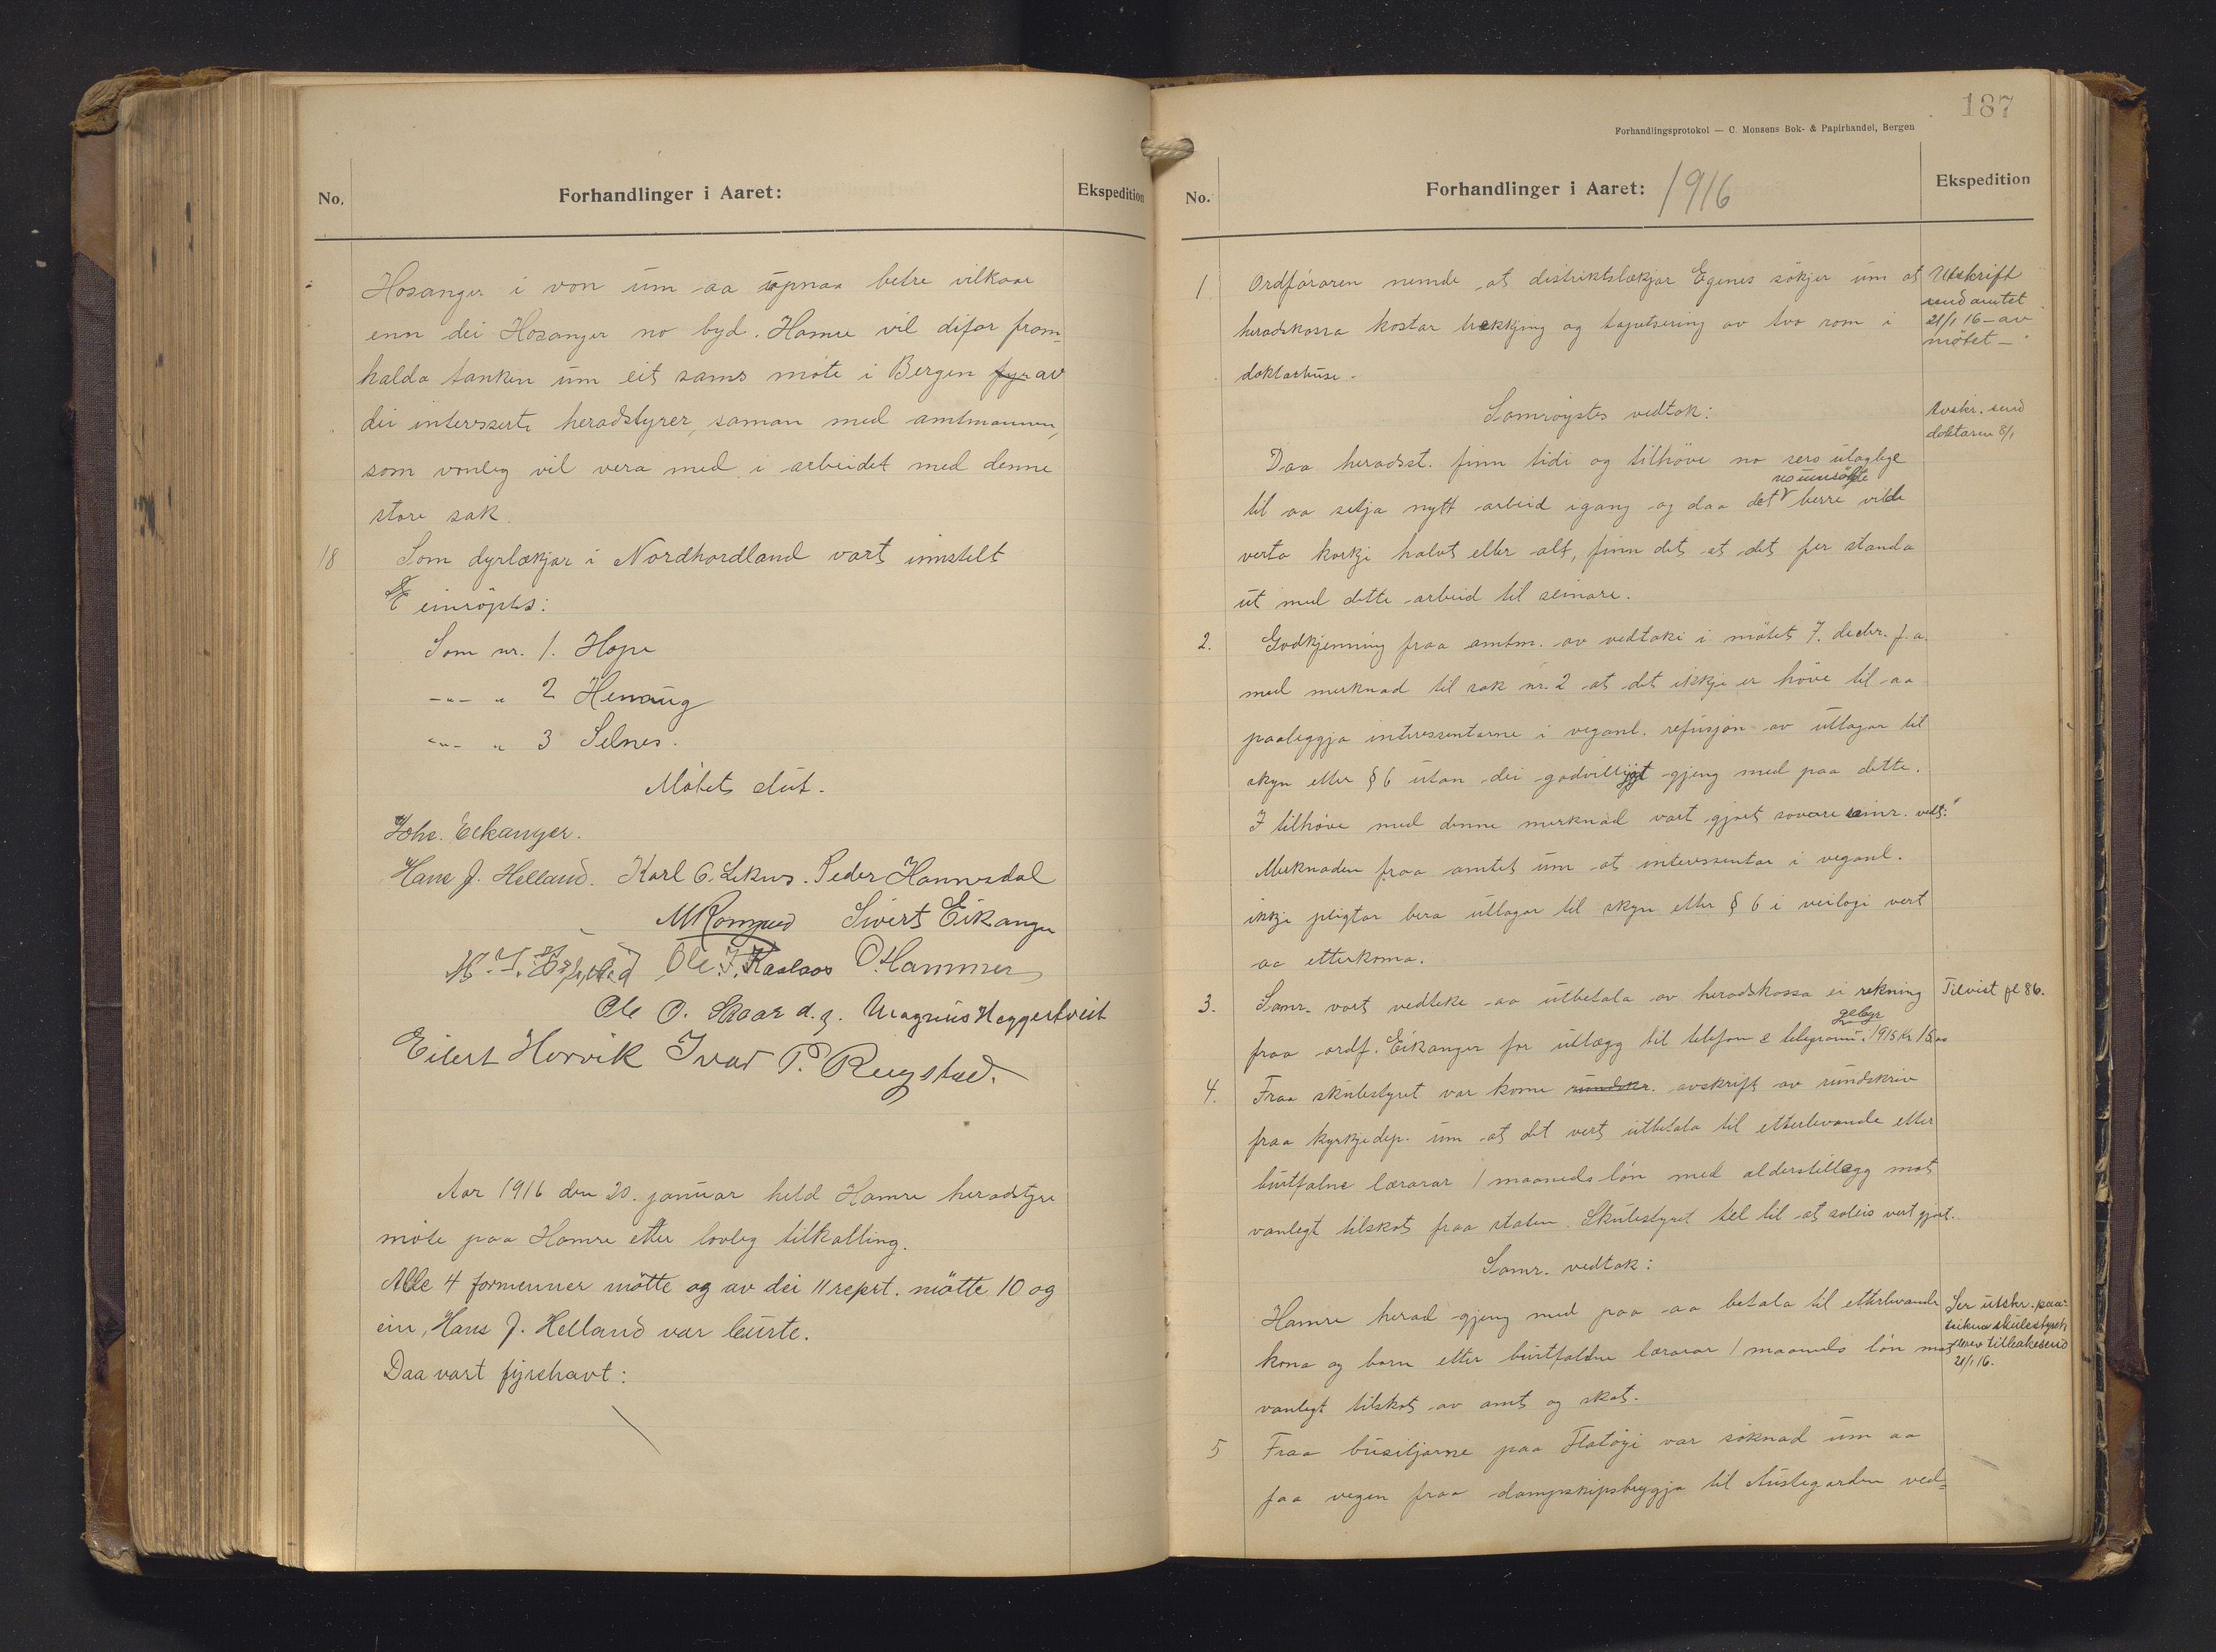 No.
Forhandlinger i Aaret:
Ekspedition
Hosanger i von um aa upnaa betre vilkaar
enn dei Hosanger no byd. Hamre vil difor fram-
halda tanken um eit sams møte i Bergen fyr av
dei interesserte heradstyrer, saman med amtmannen,
som vonleg vil vera med i arbeidet med denne
store sak.
18 Som dyrlækjar i Nordhordland vart innstelt
einröystes:
Som nr. 1. Hope
-"- " 2 Henaug
-"- " 3 Selnes.
Møtet slut.
Johs. Eikanger.
Hans J. Helland. Karl O. Leknes. Peder Hannesdal
M Romgued Sivert Eikanger
Ole J. Kaalaas O. Hammer
Ole O. Skaar d.y. Magnus Heggertveit
Eilert Horvik Ivar P. Rugstad.
Aar 1916 den 20. januar held Hamre heradstyre
møte paa Hamre etter lovleg tilkalling.
Alle 4 formenner møtte og av dei 11 reprt. møtte 10 og
ein, Hans J. Helland var burte.
Daa vart fyrehavt:
187
Forhandlingsprotokol — C. Monsens Bok- & Papirhandel, Bergen
No.
Forhandlinger i Aaret: 1916
Ekspedition
1 Ordføraren nemde at distriktslækjar Egenes søkjer um at
heradskassa kostar trekkjing og tapetsering av tvo rom i
doktarhuse.
Utskrift
send amtet
21/1 16 - av
møtet -
Samrøystes vedtak:
Avskr. send
doktaren 8/1
Daa heradsst. finn tidi og tilhøve no sers ulaglege
til aa setja nytt arbeid igang og daa det no umsøkte berre vilde
verta korkje halvt eller alt, finn det at det fær standa
ut med dette arbeid til seinare.
2. Godkjenning fraa amtm. av vedtaki i møtet 7. decbr. f.a.
med merknad til sak nr. 2 at det ikkje er høve til aa
paaleggja interessentarne i veganl. refusjon av utlagar til
skyn etter § 6 utan dei godvilligt gjeng med paa dette.
I tilhøve med denne merknad vart gjort sovore samr. vedt:"
Merknaden fraa amtet um at interessentar i veganl.
ikkje pligtar bera utlagar til skyn etter § 6 i veilogi vert
aa etterkoma.
3. Samr. vart vedteke aa utbetala av heradskassa ei rekning
fraa ordf. Eikanger for utlegg til telefon & telegram gebyr i 1915 Kr 15,00
Tilvist fl 86.
4. Fraa skulestyret var kome rundskr. avskrift av rundskriv
fraa kyrkjedep. um at det vert utbetala til etterlevande etter
burtfalne lærarar 1 maaneds løn med alderstillegg mot
vanlegt tilskot fraa staten. Skulestyret tel til at soleis vert gjort.
Samr. vedtak:
Hamre herad gjeng med paa aa betala til etterlevande
kona og born etter burtfaldne lærarar 1 maaneds løn mot
vanlegt tilskot av amt og stat.
21/1 16.
5 Fraa busitjarne paa Flatøyi var søknad um aa
faa vegen fraa dampskipsbryggja til Austegarden ved-